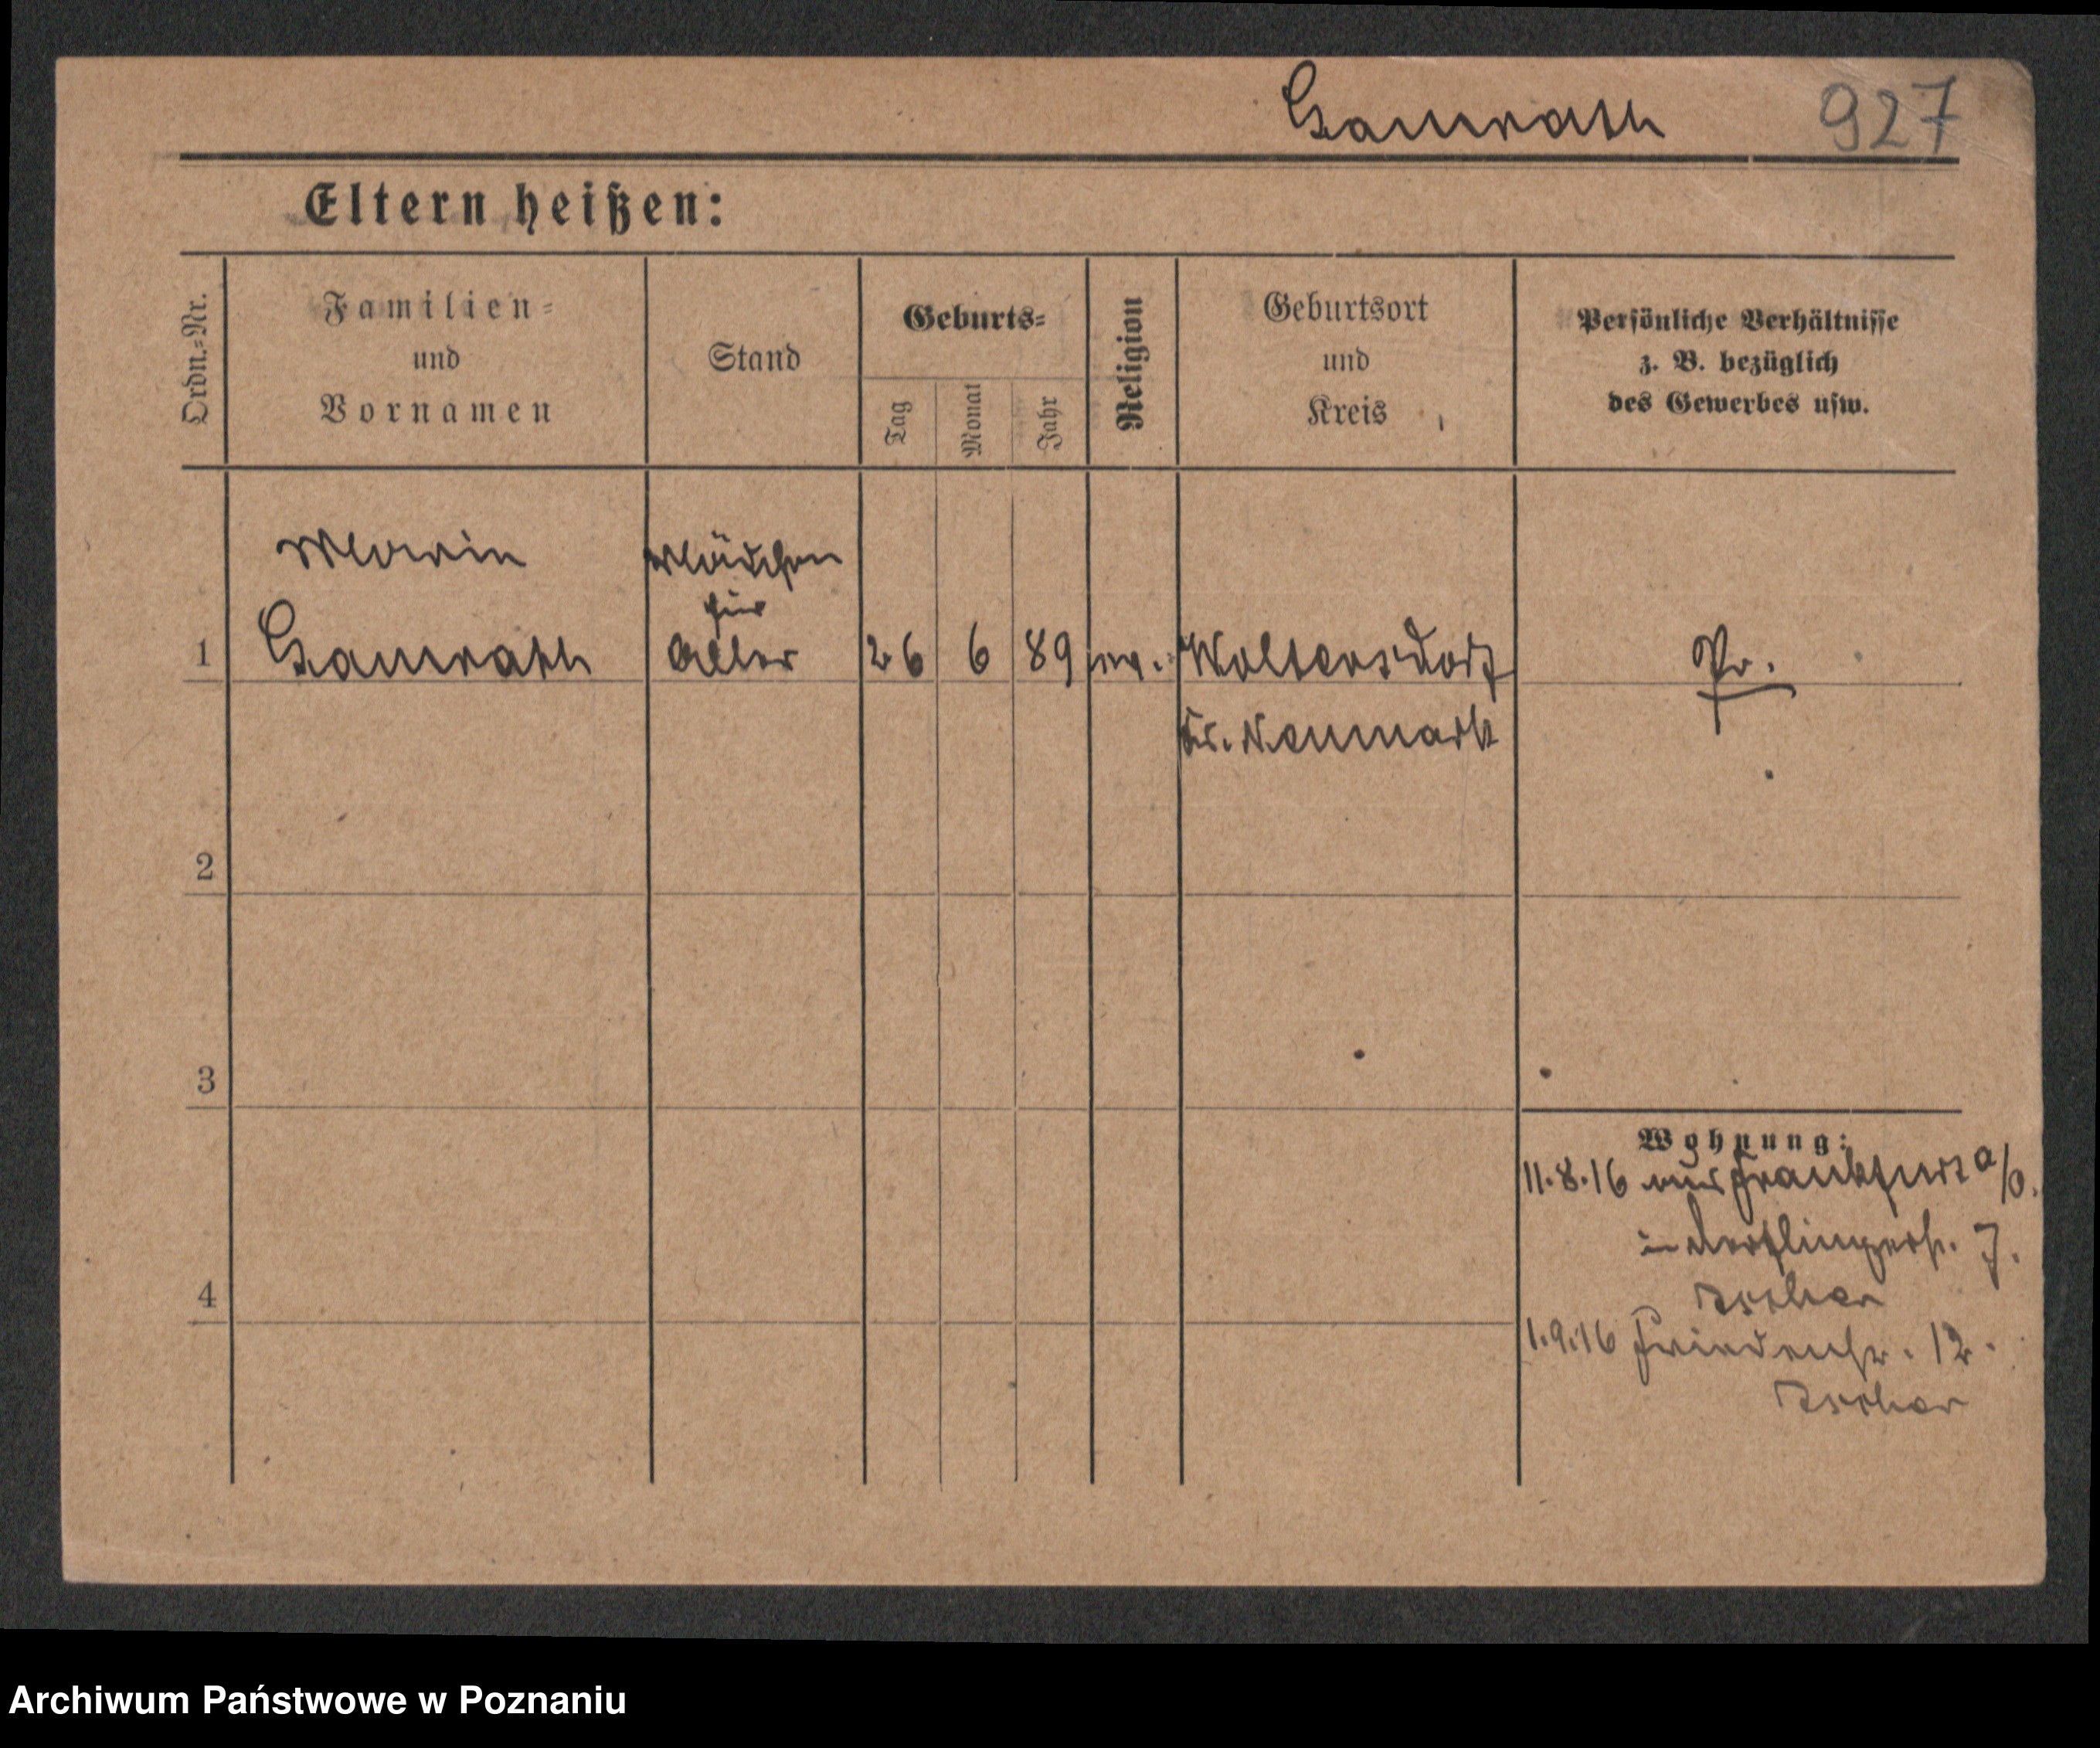 Gamrath 927
Eltern heißen:
Ordn.-Nr.
Familien-
und
Vornamen
Stand
Geburts-
Tag
Monat
Jahr
Religion
Geburtsort
und
Kreis
Persönliche Verhältnisse
z. B. bezüglich
des Gewerbes usw.
Marie Mädchen
für
1 Gamrath Aller 26 6 89 ev. Woltersdorf Pr.
Kr. Neumark
2
3
4
Wohnung:
11.8.16 aus Frankfurt a/O.
in Derfflingerstr. 7.
1.9.16 Friedenstr. 12.
Archiwum Państwowe w Poznaniu